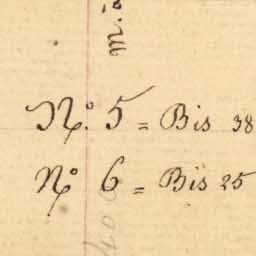 m.
N.º 5 = Bis 38
Nº 6 = Bis 25